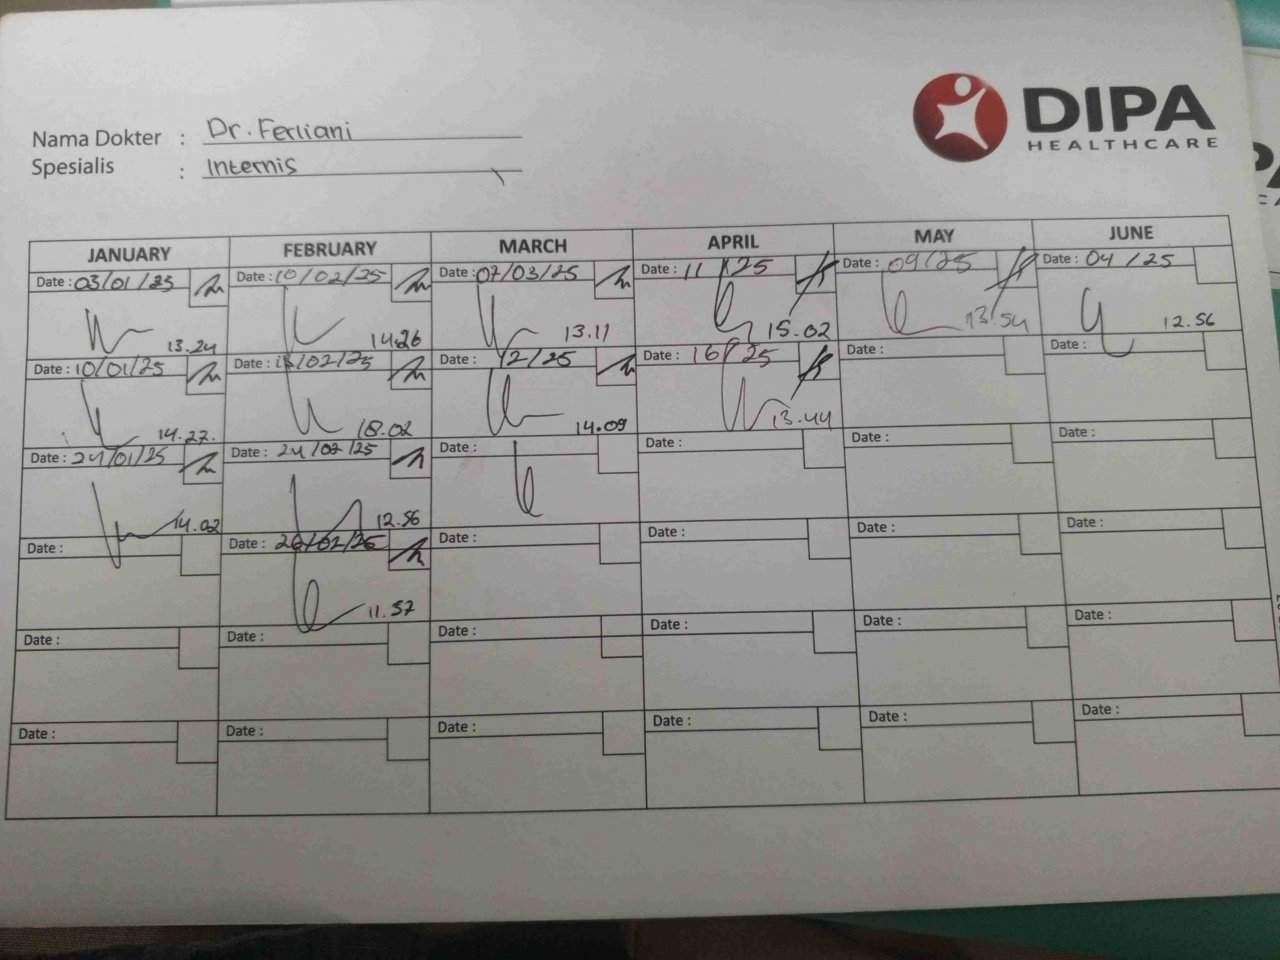 DIPA
HEALTHCARE
Nama Dokter : Dr. Ferliani
Spesialis : Internis
JANUARY FEBRUARY MARCH APRIL MAY JUNE
Date : 03/01/25 Date : 10/02/25 Date : 07/03/25 Date : 11 /25 Date : 09/25 Date : 04 /25
13.24 14.26 13.11 15.02 13.54 12.56
Date : 10/01/25 Date : /02/25 Date : 12/25 Date : 16/25 Date : Date :
14.27. 18.02 14.09 13.44
Date : 24/01/25 Date : 24/02/25 Date : Date : Date : Date :
14.02 12.56
Date : Date : 26/02/25 Date : Date : Date : Date :
11.57
Date : Date : Date : Date : Date : Date :
Date : Date : Date : Date : Date : Date :